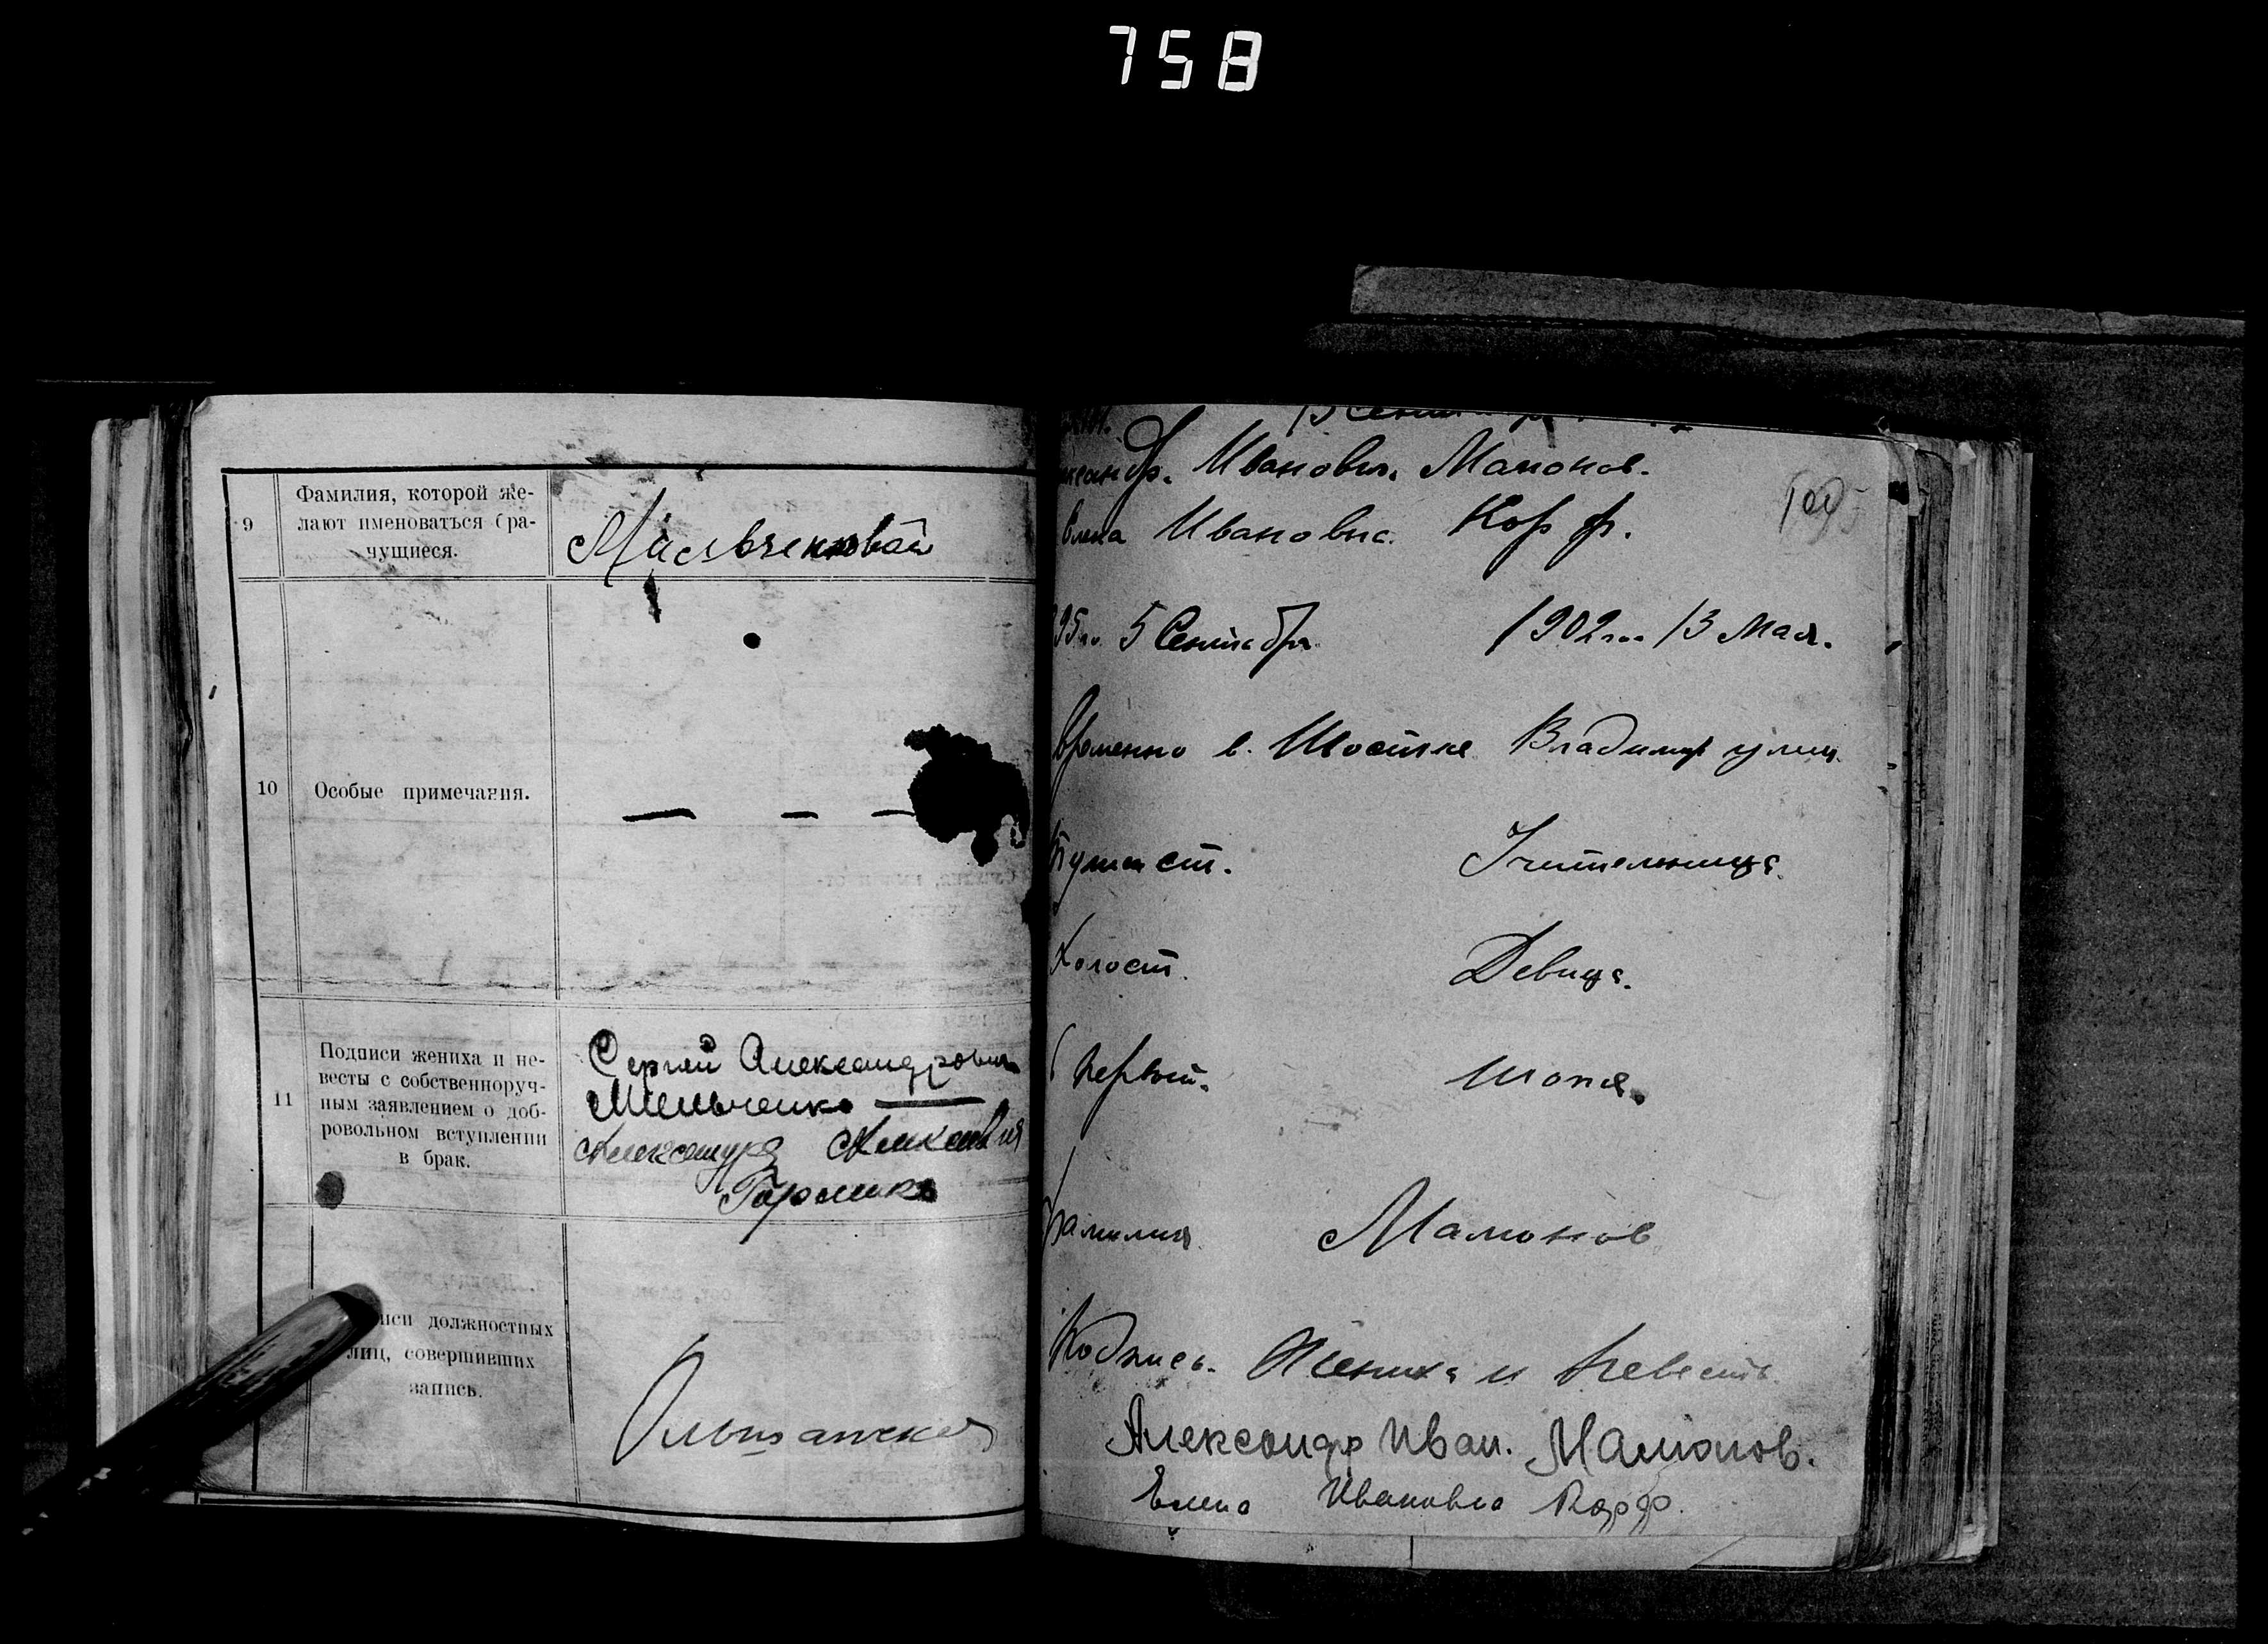 758
9
Фамилия, которой же-
лают именоваться бра-
чущиеся.
10
Особые примечания.
— — —
11
Подписи жениха и не-
весты с собственноруч-
ным заявлением о доб-
ровольном вступлении
в брак.
Сергей Александрович
Мельченко —
Александра
должностных
лиц, совершивших
запись.
Иванович. Мамонов.
Ивановна. Корф.
5 Сентября 1902 го. 13 Мая.
Временно в. Шостке Владимир улиц.
Учительница.
Холост. Девица.
Первый. Тоже.
Фамилия Мамонов
Подпись. Жениха и Невесты.
Александр Иван. Мамонов.
Елена Ивановна Корф.